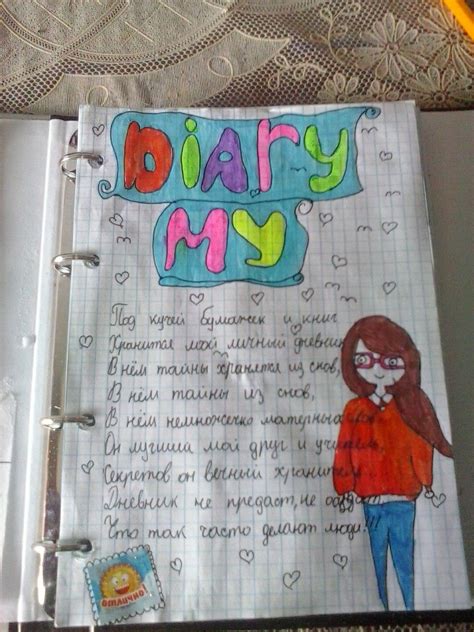 DiARY
MY
Под кучей бумажек и книг
Хранится мой личный дневник
В нём тайны хранятся из снов,
В нём тайны из снов,
В нём немножечко матерных слов.
Он лучший мой друг и учитель,
Секретов он вечный хранитель...
Дневник не предаст, не
Что так часто делают люди!!!
отлично